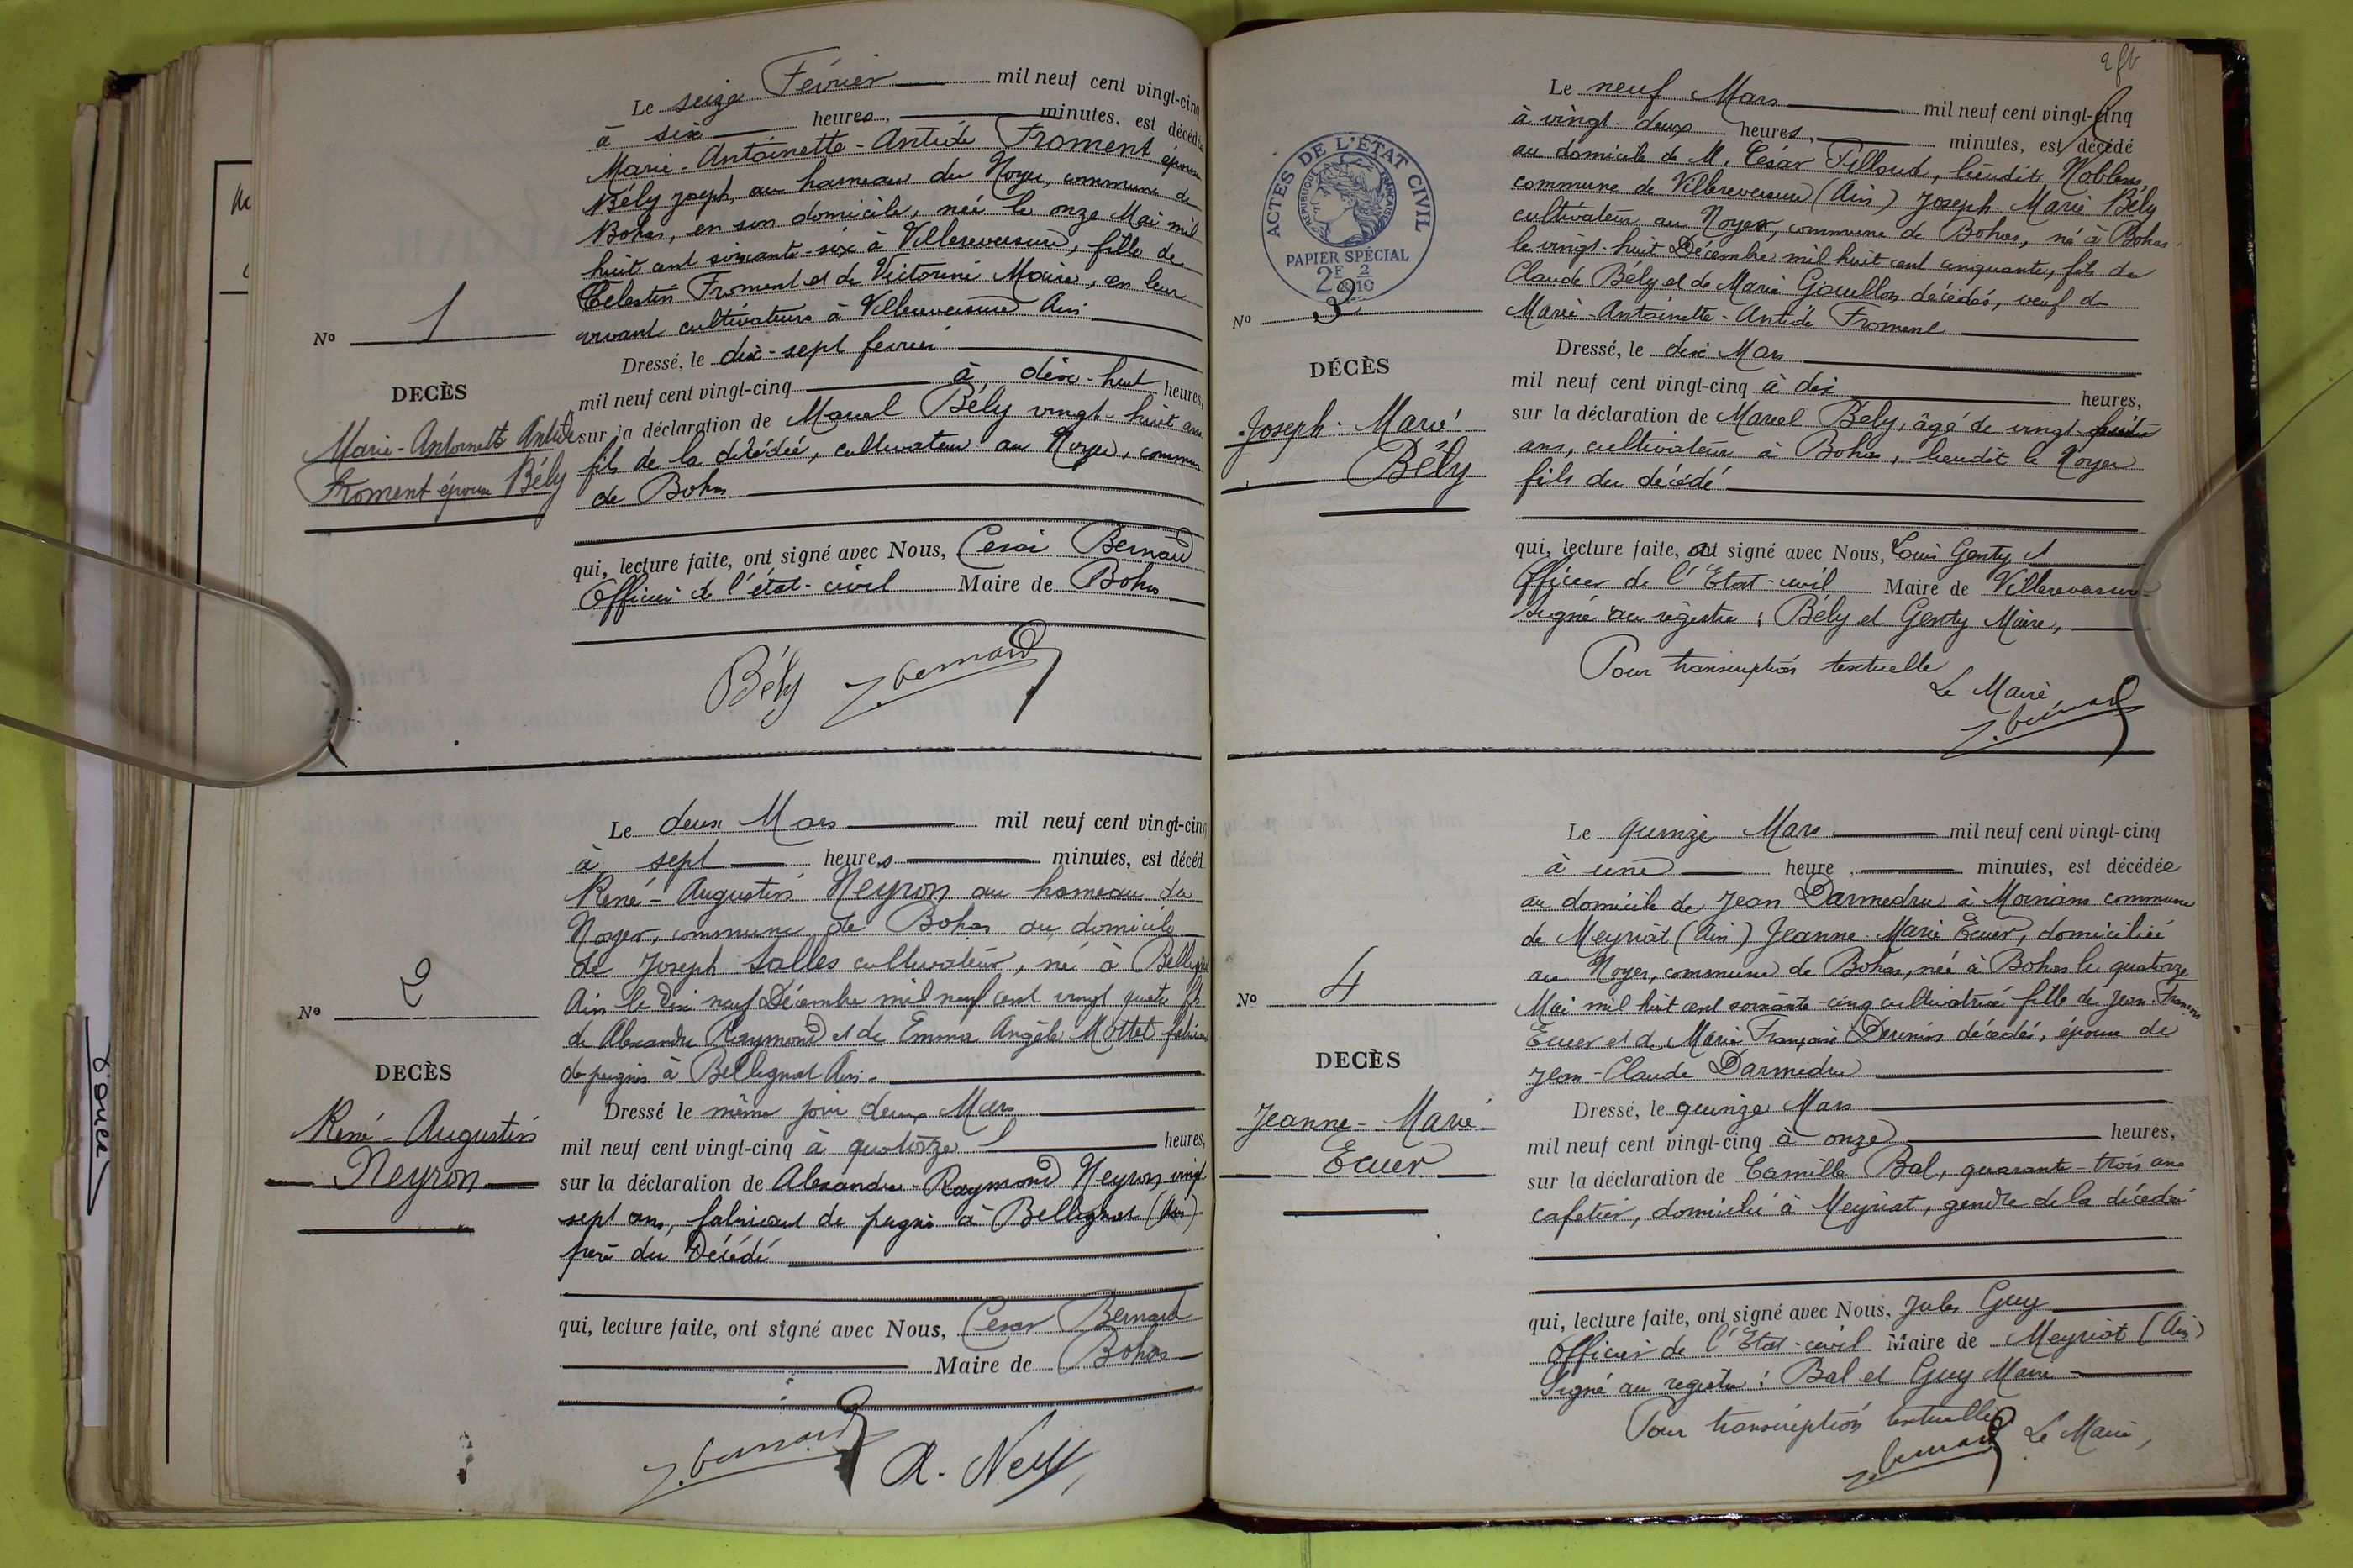 Le seize Février mil neuf cent vingt-cinq
à six heures, minutes, est décédée
Marie-Antoinette-Antide Froment épouse
Bély Joseph, au hameau du Noyer, commune de
Bohas, en son domicile, née le onze Mai mil
huit cent soixante-six à Villereversure, fille de
Célestin Froment et de Victorine Moine, en leur
vivant cultivateurs à Villereversure Ain
Nº 1
Dressé, le dix-sept février
DECÈS
mil neuf cent vingt-cinq à dix-huit heures,
Marie-Antoinette Antide
Froment épouse Bély
sur la déclaration de Marcel Bély vingt-huit ans
fils de la décédée, cultivateur au Noyer, commune
de Bohas
qui, lecture faite, ont signé avec Nous, César Bernard
Officier de l'état-civil Maire de Bohas
Bély J. Bernard
Le deux Mars mil neuf cent vingt-cinq
à sept heures minutes, est décéd
René-Augustin Neyron au hameau du
Noyer, commune de Bohas au domicile
de Joseph Salles cultivateur, né à Bellignat
Ain le dix neuf Décembre mil neuf cent vingt quatre fils
de Alexandre Raymond et de Emma Angèle Mottet fabricants
de peignes à Bellignat Ain
Nº 2
DECÈS
René-Augustin
Neyron
Dressé le même jour deux Mars
mil neuf cent vingt-cinq à quatorze heures,
sur la déclaration de Alexandre-Raymond Neyron, vingt
sept ans, fabricant de peignes à Bellignat (Ain)
père du décédé
qui, lecture faite, ont signé avec Nous, César Bernard
Maire de Bohas
J. Bernard A. Ney
Le neuf Mars mil neuf cent vingt-cinq
à vingt-deux heures, minutes, est décédé
au domicile de M. César Pilloud, lieudit Noblens
commune de Villereversure (Ain) Joseph Marie Bély
cultivateur au Noyer, commune de Bohas, né à Bohas
le vingt-huit Décembre mil huit cent cinquante, fils de
Claude Bély et de Marie Gouillon décédés, veuf de
Marie-Antoinette-Antide Froment
ACTES DE L'ÉTAT CIVIL
RÉPUBLIQUE FRANÇAISE
PAPIER SPÉCIAL
2F 2/10
Nº 3
DÉCÈS
Joseph-Marie
Bély
Dressé, le dix Mars
mil neuf cent vingt-cinq à dix heures,
sur la déclaration de Marcel Bély, âgé de vingt-huit
ans, cultivateur à Bohas, lieudit le Noyer
fils du décédé
qui, lecture faite, ont signé avec Nous, Louis Genty
Officier de l'Etat-civil Maire de Villereversure
Signé au registre : Bély et Genty Maire,
Pour transcription textuelle
Le Maire
J. Bernard
Le quinze Mars mil neuf cent vingt-cinq
à une heure minutes, est décédée
au domicile de Jean Darmedru à Moinans commune
de Meyriat (Ain) Jeanne-Marie Ecuer, domiciliée
au Noyer, commune de Bohas, née à Bohas le quatorze
Mai mil huit cent soixante-cinq cultivatrice fille de Jean-François
Ecuer et de Marie Françoise décédés, épouse de
Jean-Claude Darmedru
Nº 4
DECÈS
Jeanne-Marie
Ecuer
Dressé, le quinze Mars
mil neuf cent vingt-cinq à onze heures,
sur la déclaration de Camille Bal, quarante-trois ans
cafetier, domicilié à Meyriat, gendre de la décédée
qui, lecture faite, ont signé avec Nous, Jules Guy
Officier de l'Etat-civil Maire de Meyriat (Ain)
Signé au registre : Bal et Guy Maire
Pour transcription textuelle
J. Bernard Le Maire,